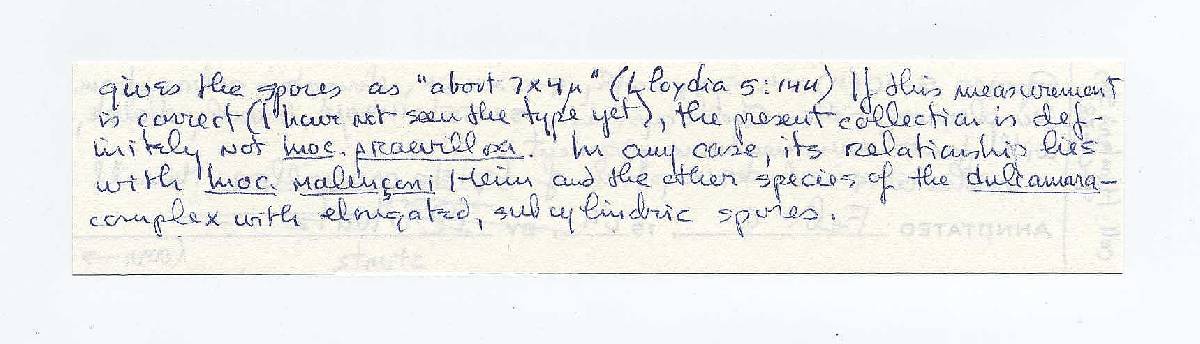 gives the spores as "about 7x4µ" (Lloydia 5:144) If this measurement
is correct (I have not seen the type yet), the present collection is def-
initely not Inoc. praevillosa. In any case, its relationship lies
with Inoc. Malençoni Heim and the other species of the dulcamara-
complex with elongated, subcylindric spores.
ANNOTATED